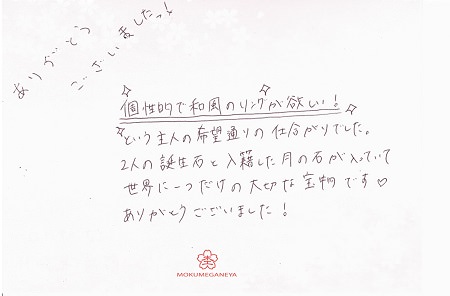 ありがとう
ございましたっ!
個性的で和風のリングが欲しい!
という主人の希望通りの仕合がりでした。
2人の誕生石と入籍した月の石が入っていて
世界に一つだけの大切な宝物です♡
ありがとうございました!
MOKUMEGANEYA